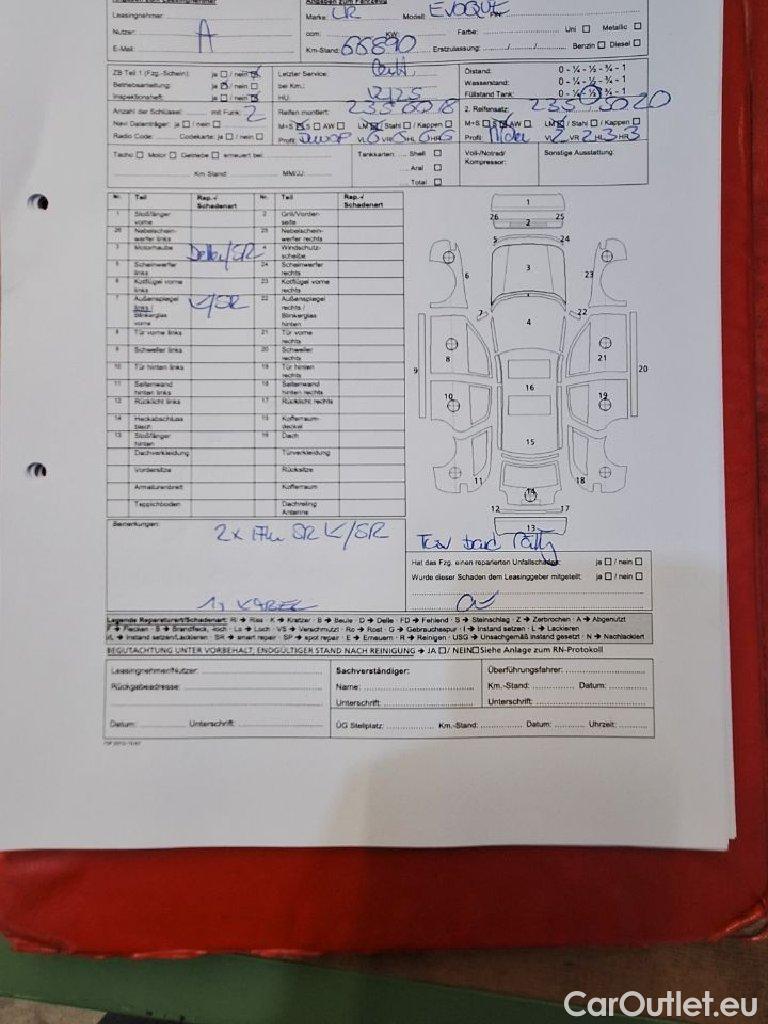 Leasingnehmer:
Marke: LR Modell: EVOQUE
Nutzer: A
ccm: KW: Farbe: Uni Metallic
E-Mail: Km-Stand: 66890 Erstzulassung: Benzin Diesel
ZB Teil 1 (Fzg.-Schein): ja / nein Letzter Service: Ölstand: 0 - ¼ - ½ - ¾ - 1
Betriebsanleitung: ja / nein bei Km.: Wasserstand: 0 - ¼ - ½ - ¾ - 1
Inspektionsheft: ja / nein HU: 12/25 Füllstand Tank: 0 - ¼ - ½ - ¾ - 1
Anzahl der Schlüssel: mit Funk: 2 Reifen montiert: 235 60 18 2. Reifensatz: 235 50 20
Navi Datenträger: ja / nein M+S S AW LM / Stahl / Kappen M+S S AW LM / Stahl / Kappen
Radio Code: Codekarte: ja / nein Profil: VL 6 VR 6 HL 6 HR 6 Profil: VL 2 VR 2 HL 3 HR 3
Tacho Motor Getriebe erneuert bei: Tankkarten: Shell Voll-/Notrad/ Sonstige Ausstattung:
Aral Kompressor:
Km Stand MM/JJ: Total
Nr. Teil Rep.-/ Schadenart Nr. Teil Rep.-/ Schadenart
1 Stoßfänger vorne 2 Grill/Vorderseite
26 Nebelscheinwerfer links 25 Nebelscheinwerfer rechts
3 Motorhaube Delle/SR 4 Windschutzscheibe
5 Scheinwerfer links 24 Scheinwerfer rechts
6 Kotflügel vorne links 23 Kotflügel vorne rechts
7 Außenspiegel links / Blinkerglas vorne K/SR 22 Außenspiegel rechts / Blinkerglas hinten
8 Tür vorne links 21 Tür vorne rechts
9 Schweller links 20 Schweller rechts
10 Tür hinten links 19 Tür hinten rechts
11 Seitenwand hinten links 18 Seitenwand hinten rechts
12 Rücklicht links 17 Rücklicht rechts
14 Heckabschlussblech 15 Kofferraumdeckel
13 Stoßfänger hinten 16 Dach
Dachverkleidung Türverkleidung
Vordersitze Rücksitze
Armaturenbrett Kofferraum
Teppichboden Dachreling Antenne
1
26 25
2
5 24
6 3 23
7 22
4
8 21
9 16 20
10 19
15
11 18
14
12 17
13
Bemerkungen:
Hat das Fzg. einen reparierten Unfallschaden: ja / nein
Wurde dieser Schaden dem Leasinggeber mitgeteilt: ja / nein
Legende Reparaturart/Schadenart: Ri → Riss · K → Kratzer · B → Beule · D → Delle · FD → Fehlend · S → Steinschlag · Z → Zerbrochen · A → Abgenutzt
F → Flecken · B → Brandfleck, -loch · Lo → Loch · VS → Verschmutzt · Ro → Rost · G → Gebrauchsspur · I → Instand setzen · L → Lackieren
I/L → Instand setzen/Lackieren · SR → smart repair · SP → spot repair · E → Erneuern · R → Reinigen · USG → Unsachgemäß instand gesetzt · N → Nachlackiert
BEGUTACHTUNG UNTER VORBEHALT, ENDGÜLTIGER STAND NACH REINIGUNG → JA / NEIN Siehe Anlage zum RN-Protokoll
Leasingnehmer/Nutzer: Sachverständiger: Überführungsfahrer:
Rückgabeadresse: Name: Km.-Stand: Datum:
Unterschrift: Unterschrift:
Datum: Unterschrift: ÜG Stellplatz: Km.-Stand: Datum: Uhrzeit:
CarOutlet.eu